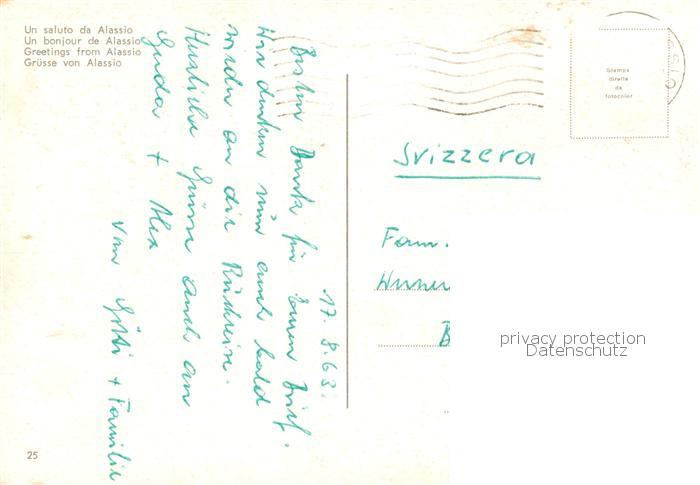 Un saluto da Alassio
Un bonjour de Alassio
Greetings from Alassio
Grüsse von Alassio
17. 8. 63.
Besten Dank für Euren Brief.
Wir denken nun auch bald
wieder an die Rückreise.
Herzliche Grüsse auch an
Gerda + Alex
von Gitti + Familie
Stampa
diretta
da
fotocolor
Svizzera
Fam.
privacy protection
Datenschutz
25